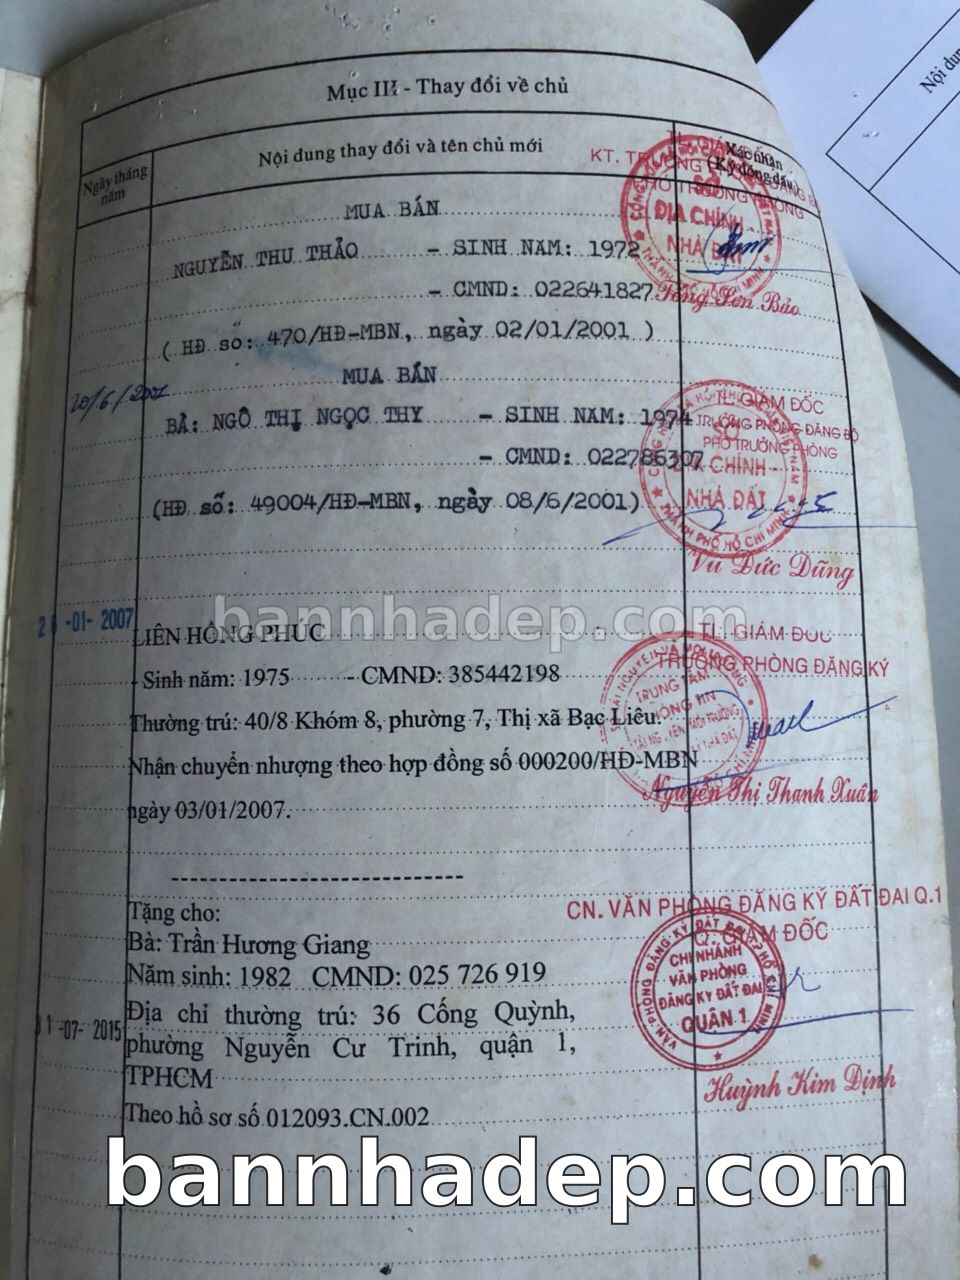 Nội dung
Mục III - Thay đổi về chủ
Ngày tháng năm
Nội dung thay đổi và tên chủ mới
Xác nhận
(Ký đóng dấu)
MUA BÁN
NGUYỄN THU THẢO - SINH NĂM: 1972
- CMND: 022641827
( HĐ số: 470/HĐ-MBN, ngày 02/01/2001 )
TL. GIÁM ĐỐC
KT. TRƯỞNG PHÒNG
PHÓ TRƯỞNG PHÒNG
SỞ
ĐỊA CHÍNH -
NHÀ ĐẤT
THÀNH PHỐ HỒ CHÍ MINH
MUA BÁN
20/6/2001
BÀ: NGÔ THỊ NGỌC THY - SINH NĂM: 1974
- CMND: 022786307
(HĐ số: 49004/HĐ-MBN, ngày 08/6/2001)
TL. GIÁM ĐỐC
TRƯỞNG PHÒNG ĐĂNG BỘ
PHÓ TRƯỞNG PHÒNG
SỞ
ĐỊA CHÍNH -
NHÀ ĐẤT
THÀNH PHỐ HỒ CHÍ MINH
Vũ Đức Dũng
bannhadep.com
-01- 2007
LIÊN HỒNG PHÚC
- Sinh năm: 1975 - CMND: 385442198
Thường trú: 40/8 Khóm 8, phường 7, Thị xã Bạc Liêu.
Nhận chuyển nhượng theo hợp đồng số 000200/HĐ-MBN
ngày 03/01/2007.
TL. GIÁM ĐỐC
TRƯỞNG PHÒNG ĐĂNG KÝ
TRUNG TÂM
THÔNG TIN
Nguyễn Thị Thanh Xuân
-------------------------------
Tặng cho:
Bà: Trần Hương Giang
Năm sinh: 1982 CMND: 025 726 919
31-07- 2015
Địa chỉ thường trú: 36 Cống Quỳnh,
phường Nguyễn Cư Trinh, quận 1,
TPHCM
Theo hồ sơ số 012093.CN.002
CN. VĂN PHÒNG ĐĂNG KÝ ĐẤT ĐAI Q.1
Q. GIÁM ĐỐC
VĂN PHÒNG ĐĂNG KÝ ĐẤT ĐAI TP.HỒ CHÍ MINH
CHI NHÁNH
VĂN PHÒNG
ĐĂNG KÝ ĐẤT ĐAI
QUẬN 1
Huỳnh Kim Định
bannhadep.com